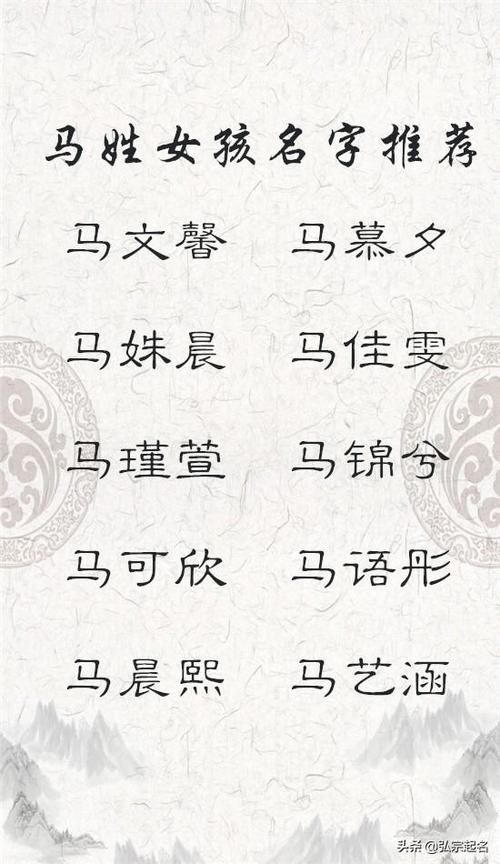 马姓女孩名字推荐
马文馨 马慕夕
马姝晨 马佳雯
马瑾萱 马锦兮
马可欣 马语彤
马晨熙 马艺涵
头条 @弘宗起名